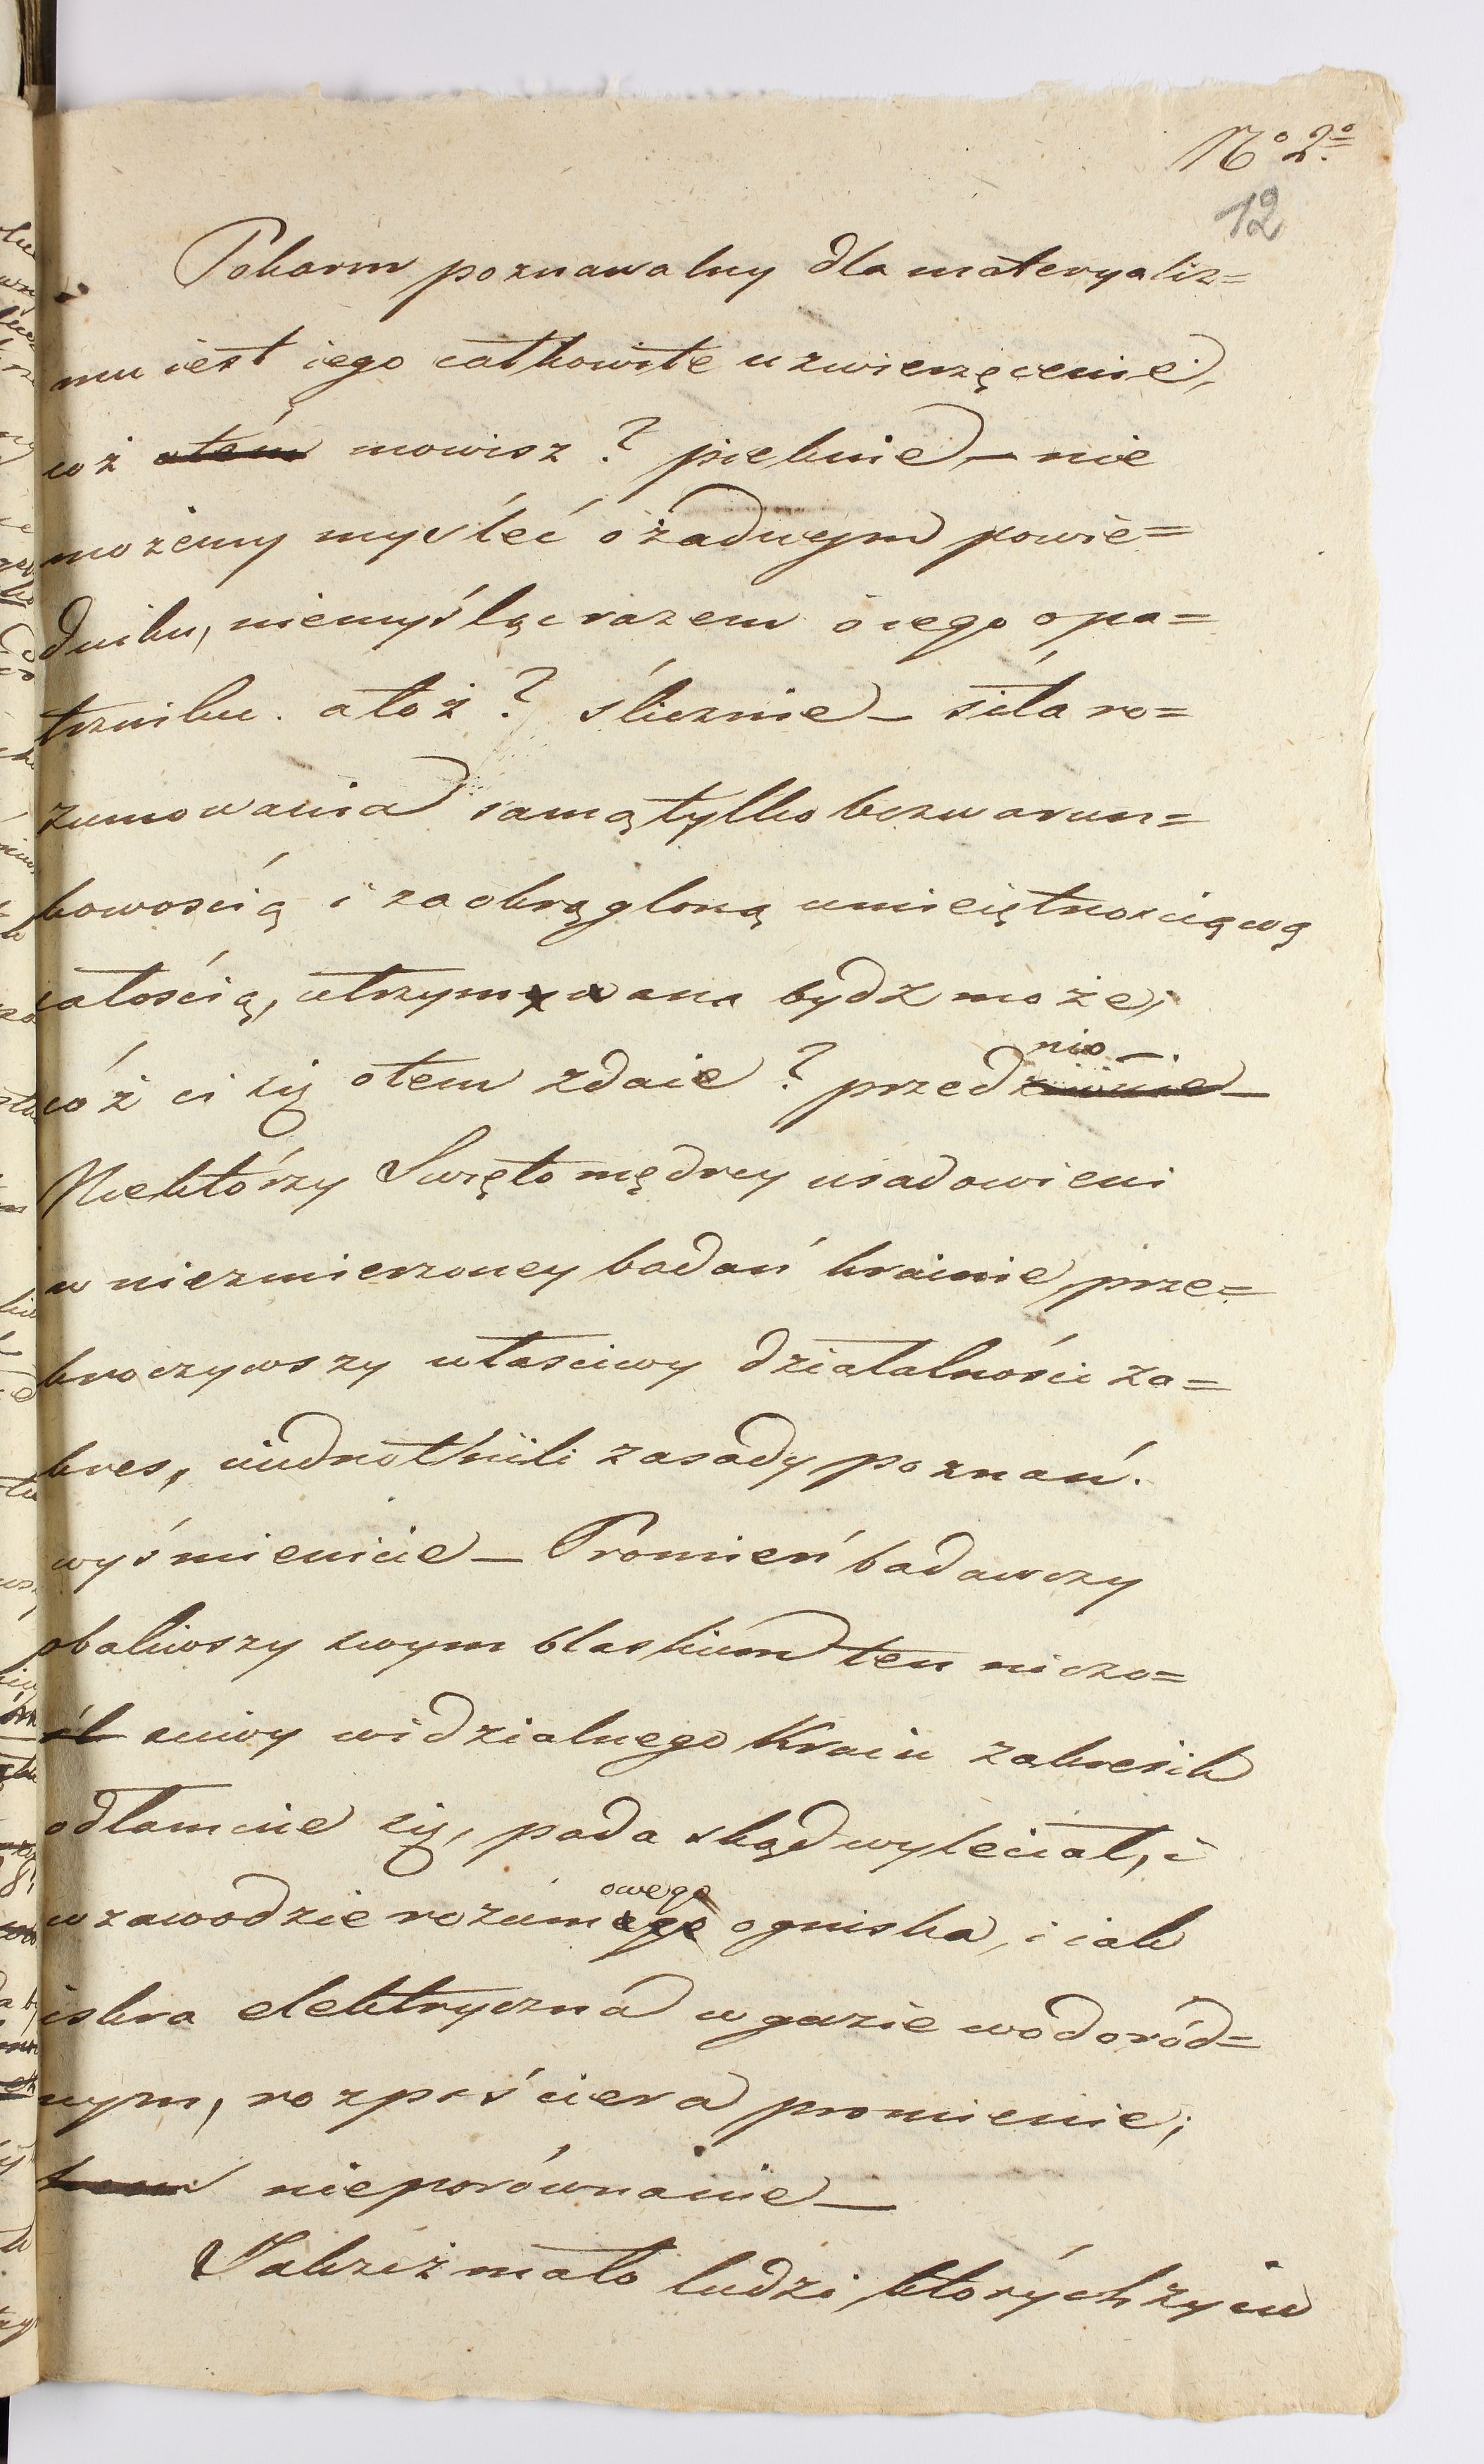 No 2o
12
Pokarm poznawalny dla materyaliz=
mu iest iego całkowite uzwierzęcenie,
coż otém mowisz? pieknie — nie
możemy mysleć o żadnym powie=
dniku, niemyśląc razem o iego opa=
trzniku. a toż? ślicznie — siła ro=
zumowania samą tylko bezwarun=
kowością i zaokrągloną umieiętnościową
całością, utrzymywana bydź może;
cóż ci się otem zdaie? przedziwnie —
nio —.
Niektórzy Swięto mędrcy usadowieni
w niezmierzoney badań krainie, prze=
kroczywszy własciwy działalności za=
kres, uiednotnili zasady poznań.
wyśmienicie — Promień badawczy
obaliwszy swym blaskiem ten niczo=
śł sciwy widzialnego Kraiu zakresik
odłamuie się, pada skąd wyleciał, i
w zawodzie rozumowego ogniska, i iak
owego
iskra elektryczna w gazie wodoród=
nym, rozpościera promienie;
nieporównanie —
Jakżeż mało ludzi których życie